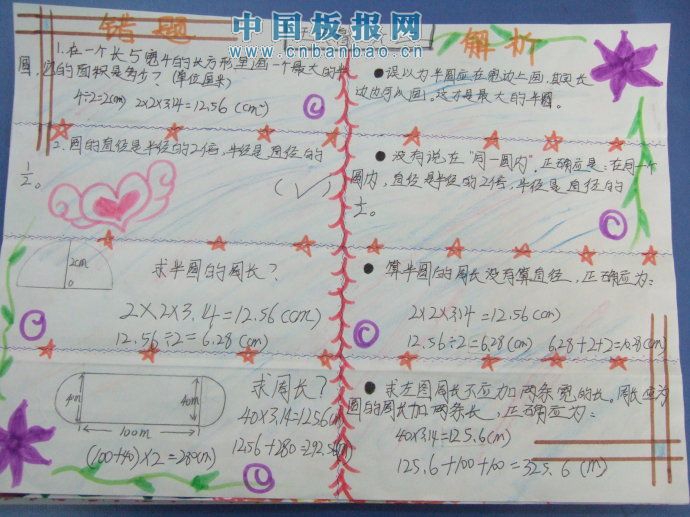 中国板报网
www.cnbanbao.cn
错题
1.在一个长5宽4的长方形里画一个最大的半
圆,它的面积是多少?(单位厘米)
4÷2=2(cm) 2×2×3.14=12.56(cm)
2.圆的直径是半径的2倍,半径是直径的
1/2。
(✓)
2cm
0
求半圆的周长?
2×2×3.14=12.56(cm)
12.56÷2=6.28(cm)
求周长?
40m
40m
100m
40×3.14=125.6(m)
(100+40)×2=280(m)
解析
●误以为半圆应在宽边上画,其实长
边也可以画。这才是最大的半圆。
●没有说在"同一圆内",正确应是:在同一个
圆内,直径是半径的2倍,半径是直径的
●算半圆的周长没有算直径,正确应为:
2×2×3.14=12.56(cm)
12.56÷2=6.28(cm) 6.28+2+2=10.28(cm)
●求左图周长不应加两条宽的长。周长应为
圆的周长加两条长,正确应为:
40×3.14=125.6(m)
125.6+100+100=325.6(m)